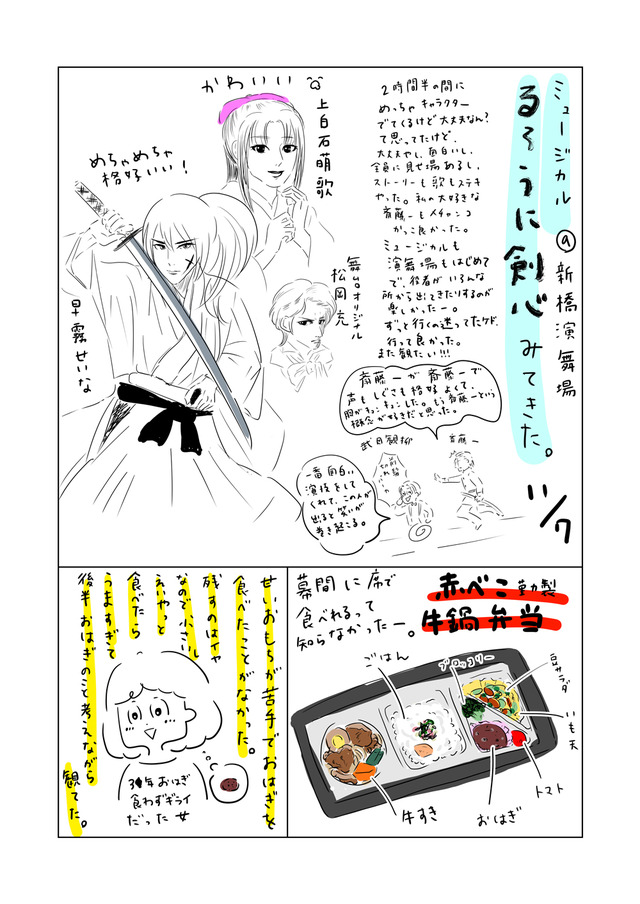 ミュージカル
るろうに剣心みてきた。
@新橋演舞場
11/7
2時間半の間に
めっちゃキャラクター
でてくるけど大丈夫なん?
て思ってたけど、
大丈夫やし、面白いし、
全員に見せ場あるし、
ストーリーも歌もステキ
やった。私の大好きな
斎藤一もメチャンコ
かっこ良かった。
ミュージカルも
演舞場もはじめて
で、役者がいろんな
所から出てきたりするのが
楽しかったー。
ずっと行くの迷ってたケド、
行って良かった。
また観たい!!!
かわいい
上白石萌歌
めちゃめちゃ
格好いい!
早霧せいな
松岡充
斎藤一が斎藤一で
声もしぐさも格好よくて、
胸がキュンキュンした。もう斎藤一という
概念が好きだと思った。
武田観柳
斎藤一
一番面白い
演技をして
くれて、この人が
出ると笑いが
巻き起こる。
赤べこ勤製
牛鍋弁当
幕間に席で
食べれるって
知らなかったー。
ごはん
ブロッコリー
豆サラダ
いも天
トマト
おはぎ
牛すき
せいおもちが苦手でおはぎを
食べたことがなかった。
残すのはイヤ
なので小さいし
えいやっと
食べたら
うますぎて
後半おはぎのこと考えながら
観てた。
年おはぎ
食わずギライ
だった女